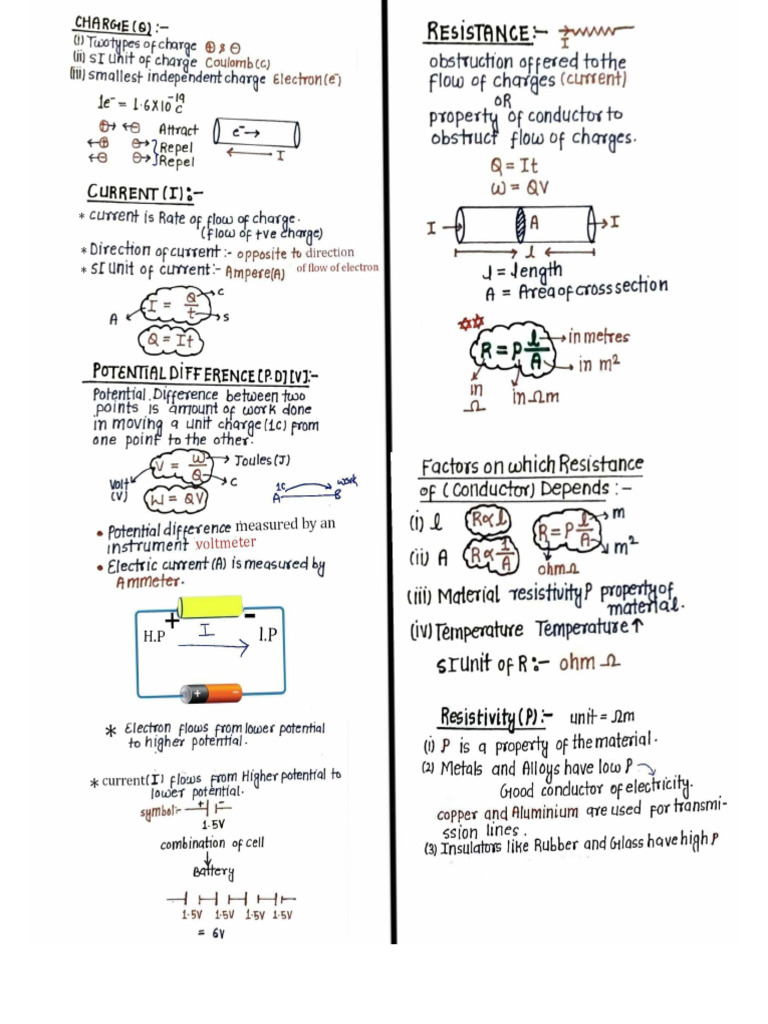 CHARGE(Q):-
(i) Two types of charge ⊕ & ⊖
(ii) SI unit of charge Coulomb(c)
(iii) smallest independent charge Electron(e⁻)
1e⁻ = 1.6X10⁻¹⁹ c
⊕→ ←⊖ Attract
←⊕ ⊕→ } Repel
←⊖ ⊖→ } Repel
e⁻→
I
CURRENT(I):-
* current is Rate of flow of charge.
(flow of +ve charge)
* Direction of current :- opposite to direction
of flow of electron
* SI unit of current:- Ampere(A)
I = Q/t
A
c
s
Q = It
POTENTIAL DIFFERENCE[P.D][V]:-
Potential Difference between two
points is amount of work done
in moving a unit charge(1C) from
one point to the other.
V = W/Q
Joules(J)
c
Volt
(V)
W = QV
1C
work
A B
• Potential difference measured by an
instrument voltmeter
• Electric current (A) is measured by
Ammeter.
+ -
H.P I l.P
+ -
* Electron flows from lower potential
to higher potential.
* current(I) flows from Higher potential to
lower potential.
symbol:- + -
1.5V
combination of cell
↓
Battery
1.5V 1.5V 1.5V 1.5V
= 6V
RESISTANCE:-
I
obstruction offered to the
flow of charges (current)
OR
property of conductor to
obstruct flow of charges.
Q = It
W = QV
I A I
l
l = length
A = Area of cross section
R = ρ l/A
in metres
in m²
in
Ω
in Ωm
Factors on which Resistance
of (Conductor) Depends :-
(i) l R∝l
(ii) A R∝1/A
R = ρ l/A
m
m²
ohm Ω
(iii) Material resistivity ρ property of
material.
(iv) Temperature Temperature↑
SI unit of R :- ohm Ω
Resistivity(ρ):- unit = Ωm
(i) ρ is a property of the material.
(2) Metals and Alloys have low ρ
Good conductor of electricity.
copper and Aluminium are used for transmi-
ssion lines.
(3) Insulators like Rubber and Glass have high ρ